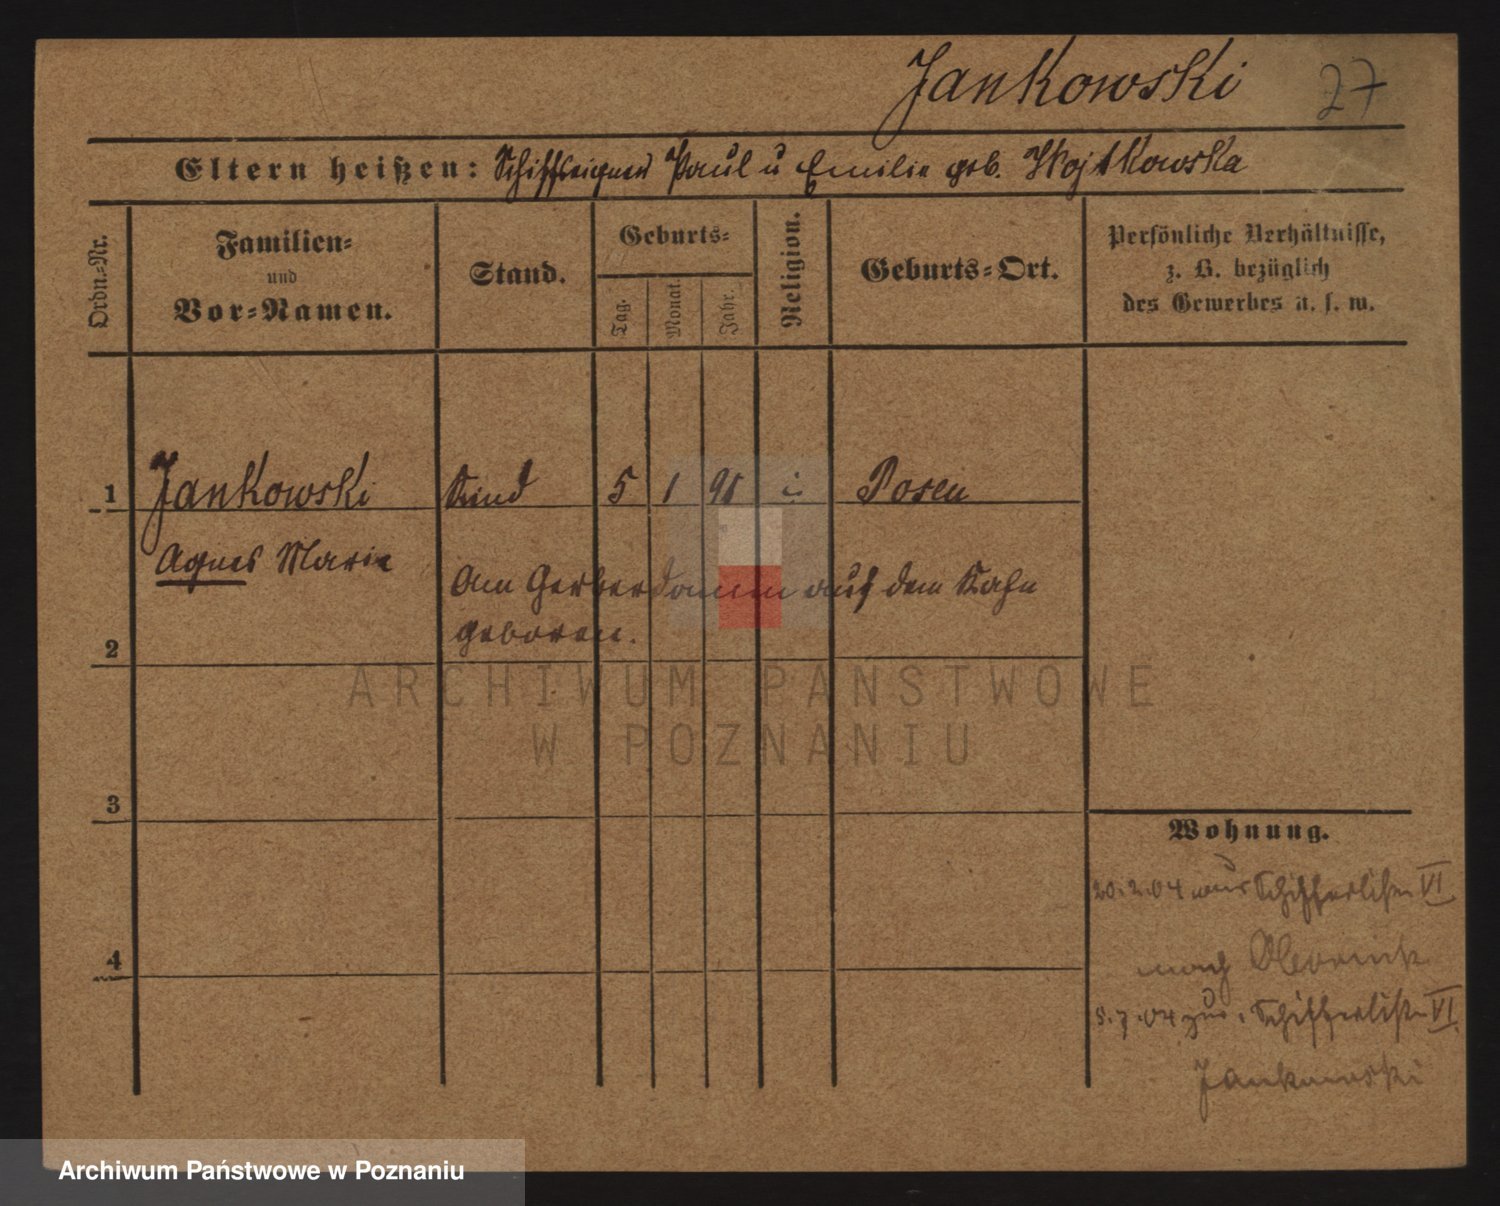 Jankowski 27
Eltern heißen: Schiffseigner Paul u Emilie geb. Wojtkowska
Ordn.-Nr.
Familien-
und
Vor-Namen.
Stand.
Geburts-
Tag.
Monat.
Jahr.
Religion.
Geburts-Ort.
Persönliche Verhältnisse,
z. B. bezüglich
des Gewerbes u. s. w.
1 Jankowski Kind 5 1 Posen
Agnes Marie
Am Gerberdamm auf dem Kahn
geboren.
2
ARCHIWUM PAŃSTWOWE
W POZNANIU
3
Wohnung.
20.2.04 aus Schifferliste VI
nach Obornik
4
5.7.04 zur Schifferliste VI
Jankowski
Archiwum Państwowe w Poznaniu